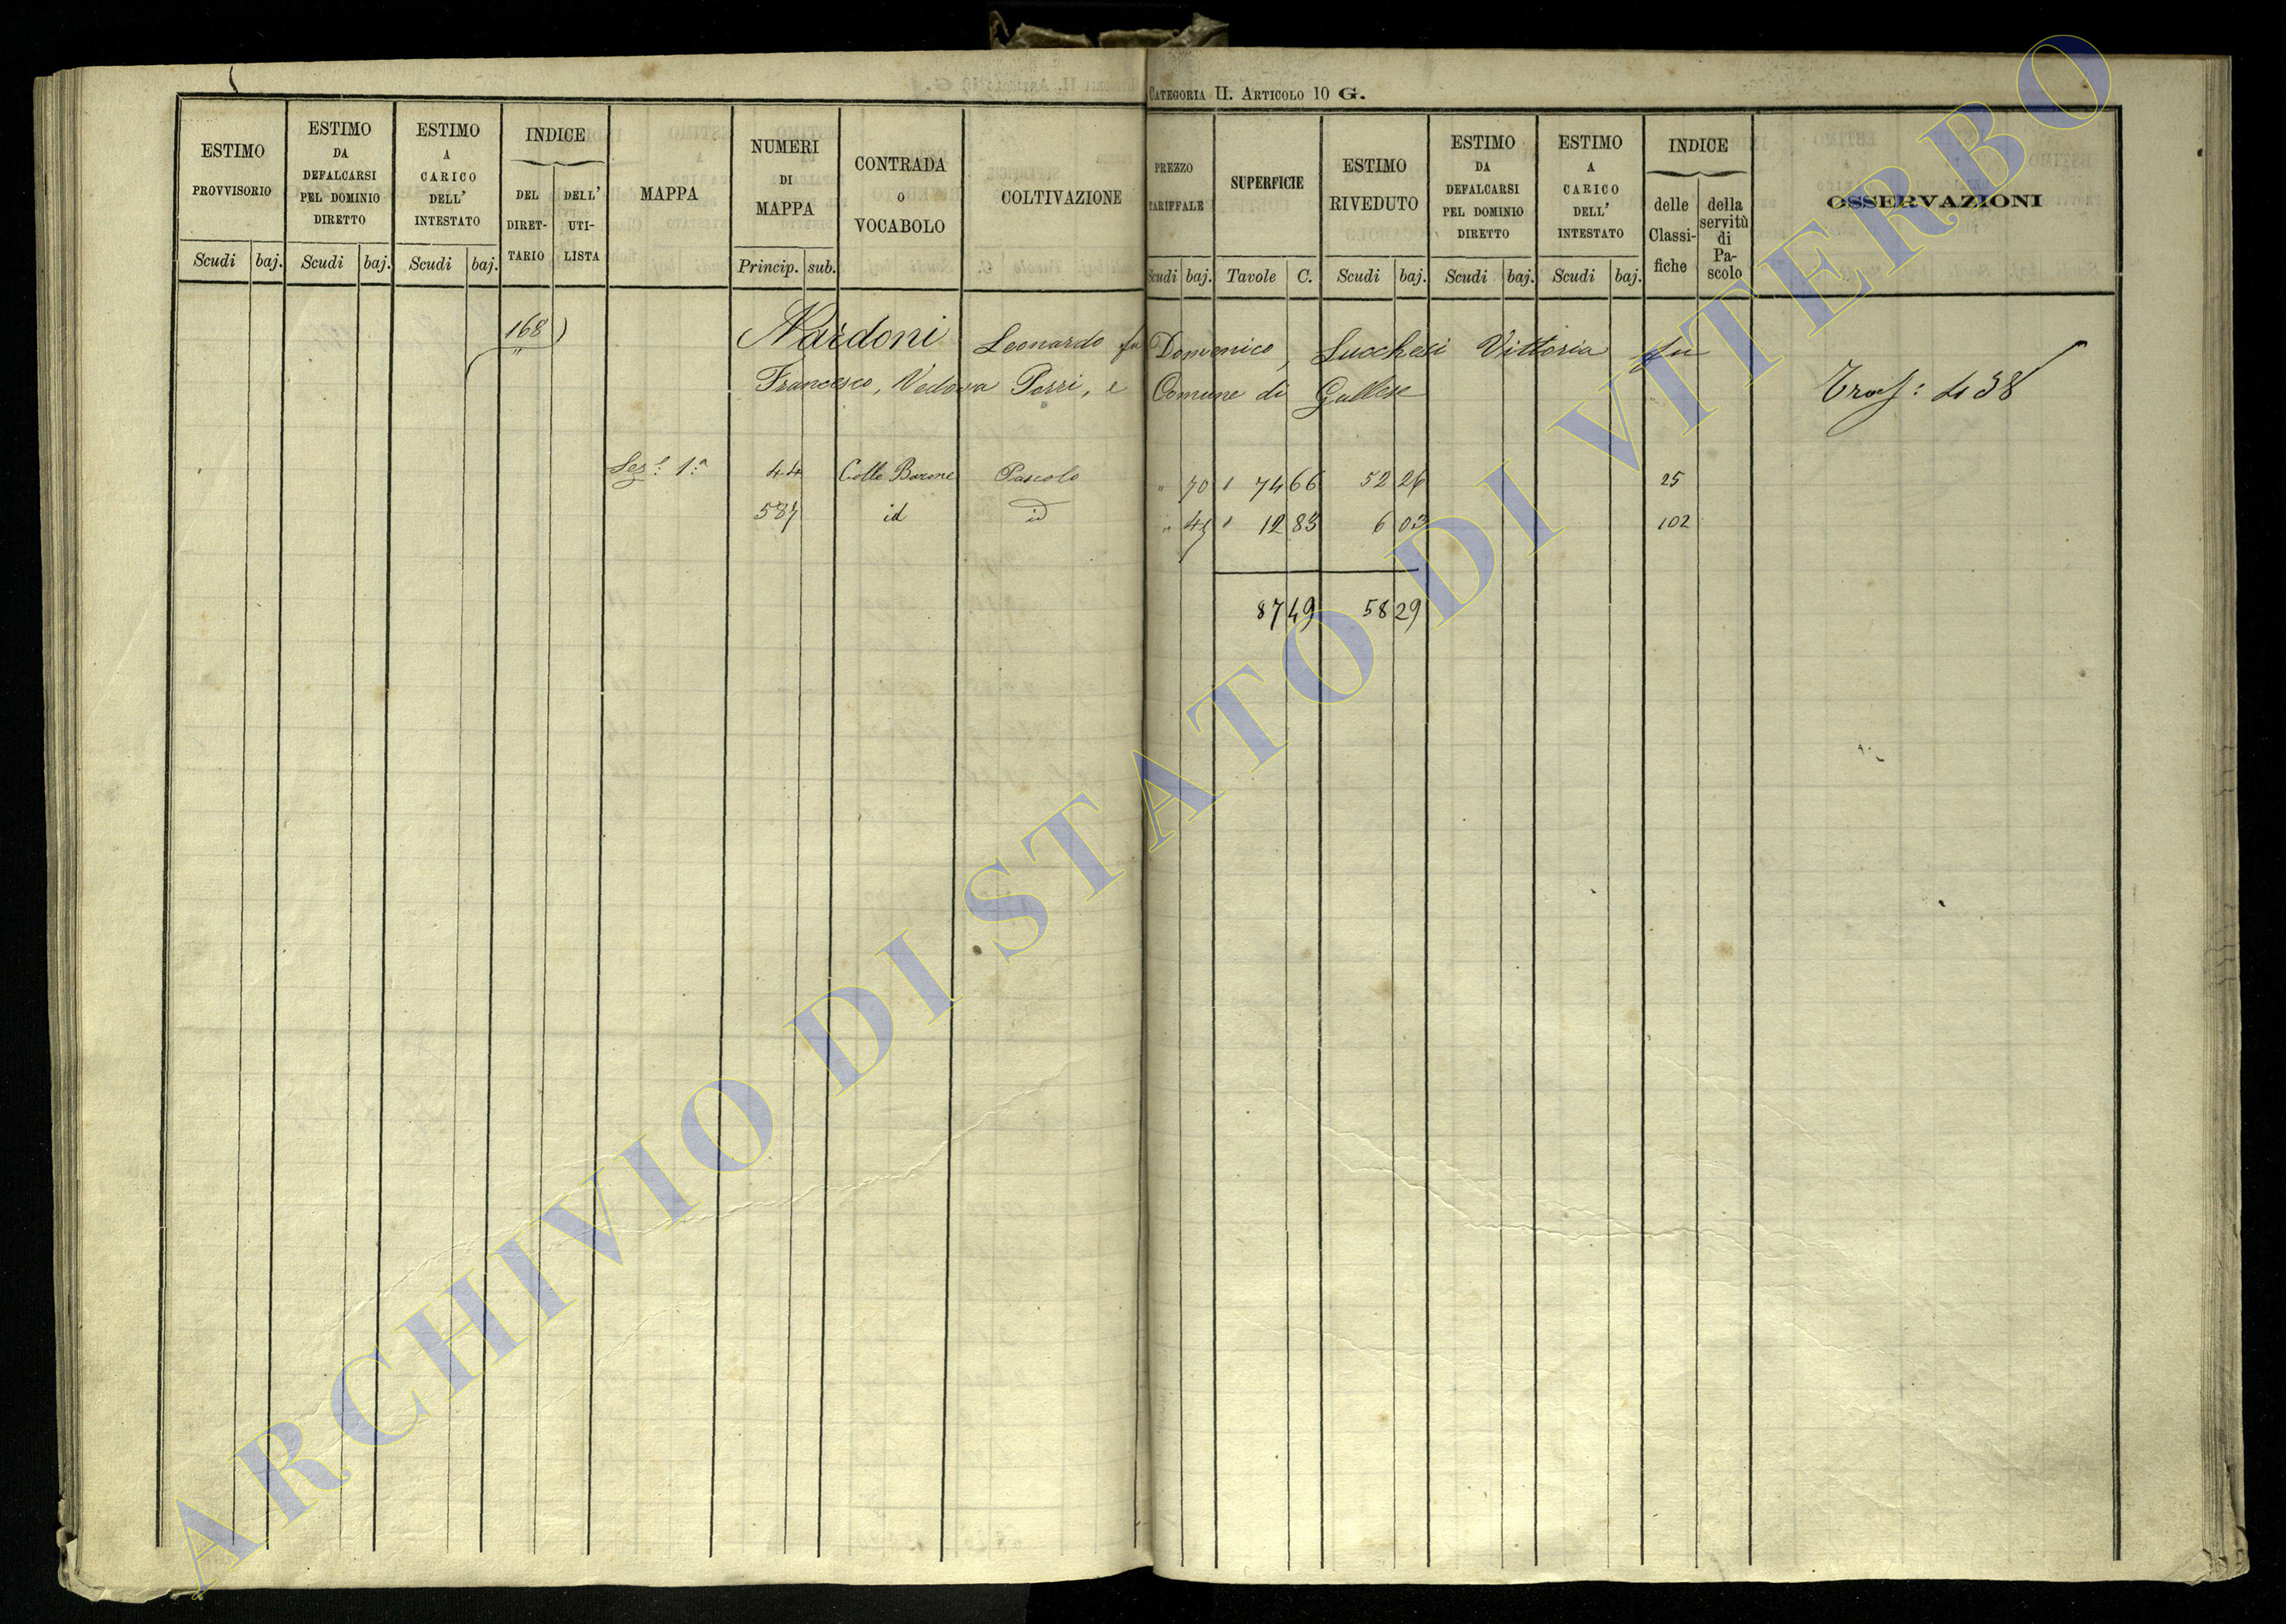 CATEGORIA II. ARTICOLO 10 G.
ESTIMO PROVVISORIO
Scudi baj.
ESTIMO DA DEFALCARSI PEL DOMINIO DIRETTO
Scudi baj.
ESTIMO A CARICO DELL' INTESTATO
Scudi baj.
INDICE
DEL DIRET-TARIO
DELL' UTI-LISTA
MAPPA
NUMERI DI MAPPA
Princip. sub.
CONTRADA o VOCABOLO
COLTIVAZIONE
PREZZO TARIFFALE
Scudi baj.
SUPERFICIE
Tavole C.
ESTIMO RIVEDUTO
Scudi baj.
ESTIMO DA DEFALCARSI PEL DOMINIO DIRETTO
Scudi baj.
ESTIMO A CARICO DELL' INTESTATO
Scudi baj.
INDICE
delle Classi-fiche
della servitù di Pa-scolo
OSSERVAZIONI
168 Nardoni Leonardo fu Domenico, Lucchesi Vittoria fu
Francesco, Vedova Porri, e Comune di Gallese
Trasf: 438
Sez.e 1.a 44 Colle Barone Pascolo " 70 74 66 52 26 25
587 id id " 47 12 83 6 03 102
87 49 58 29
ARCHIVIO DI STATO DI VITERBO